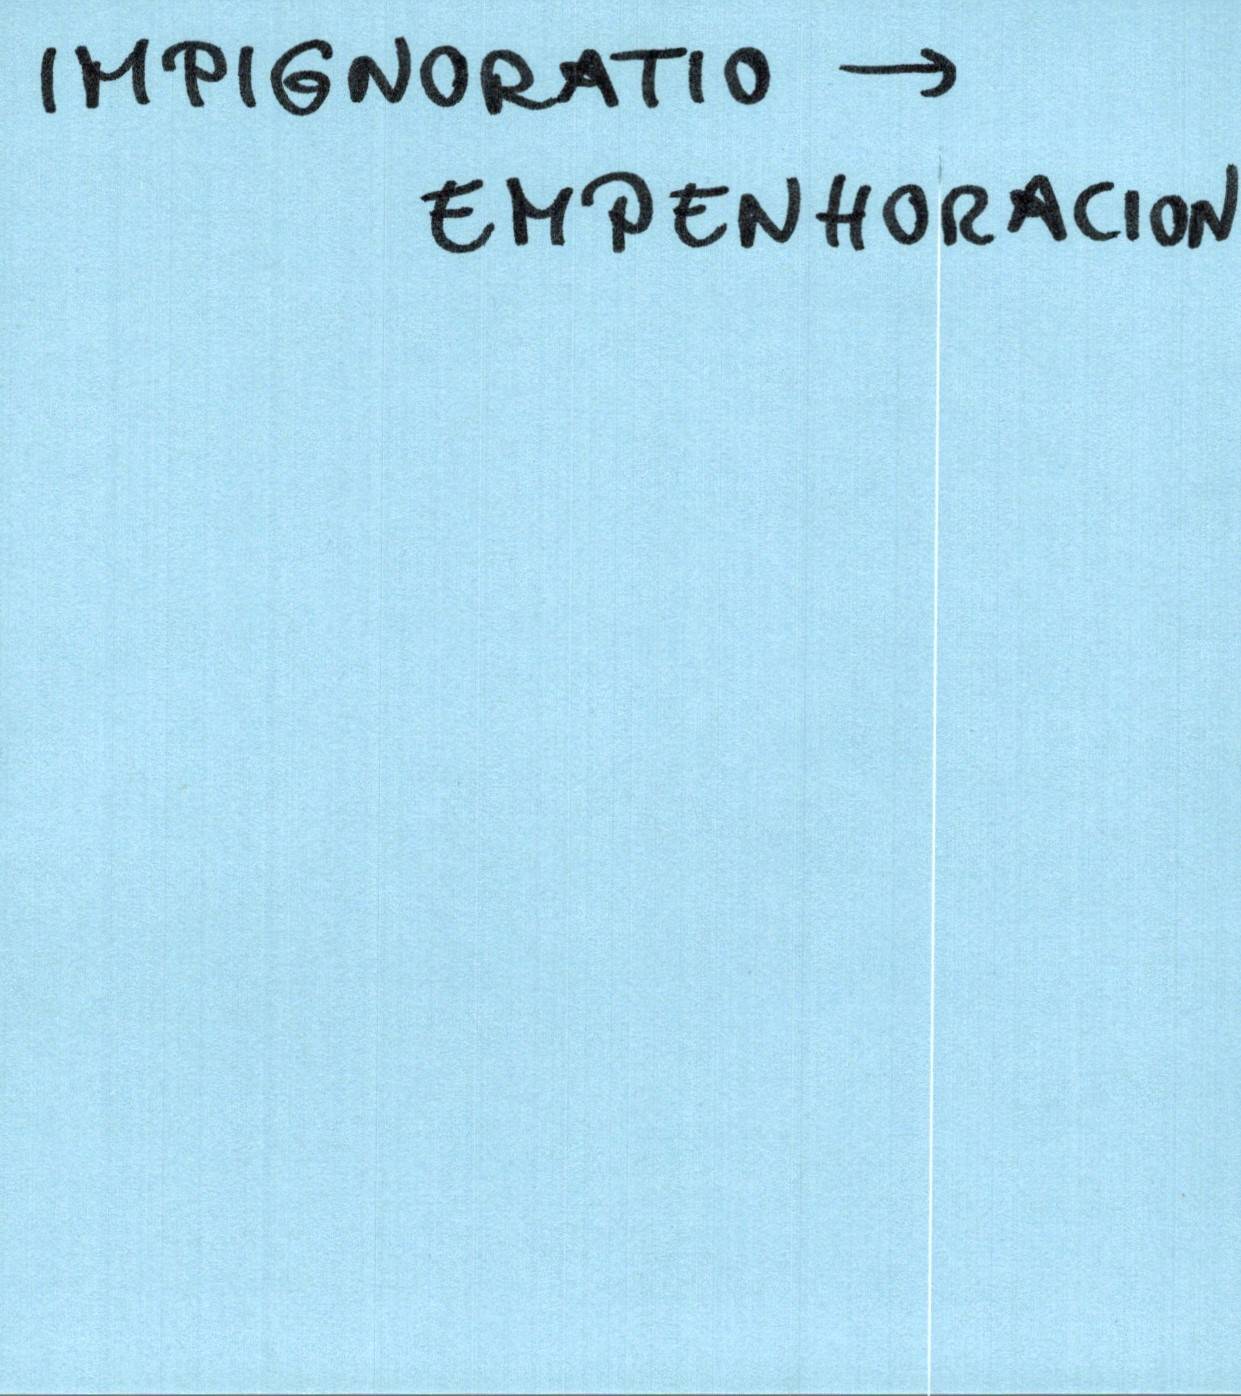 IMPIGNORATIO →
EMPENHORACION